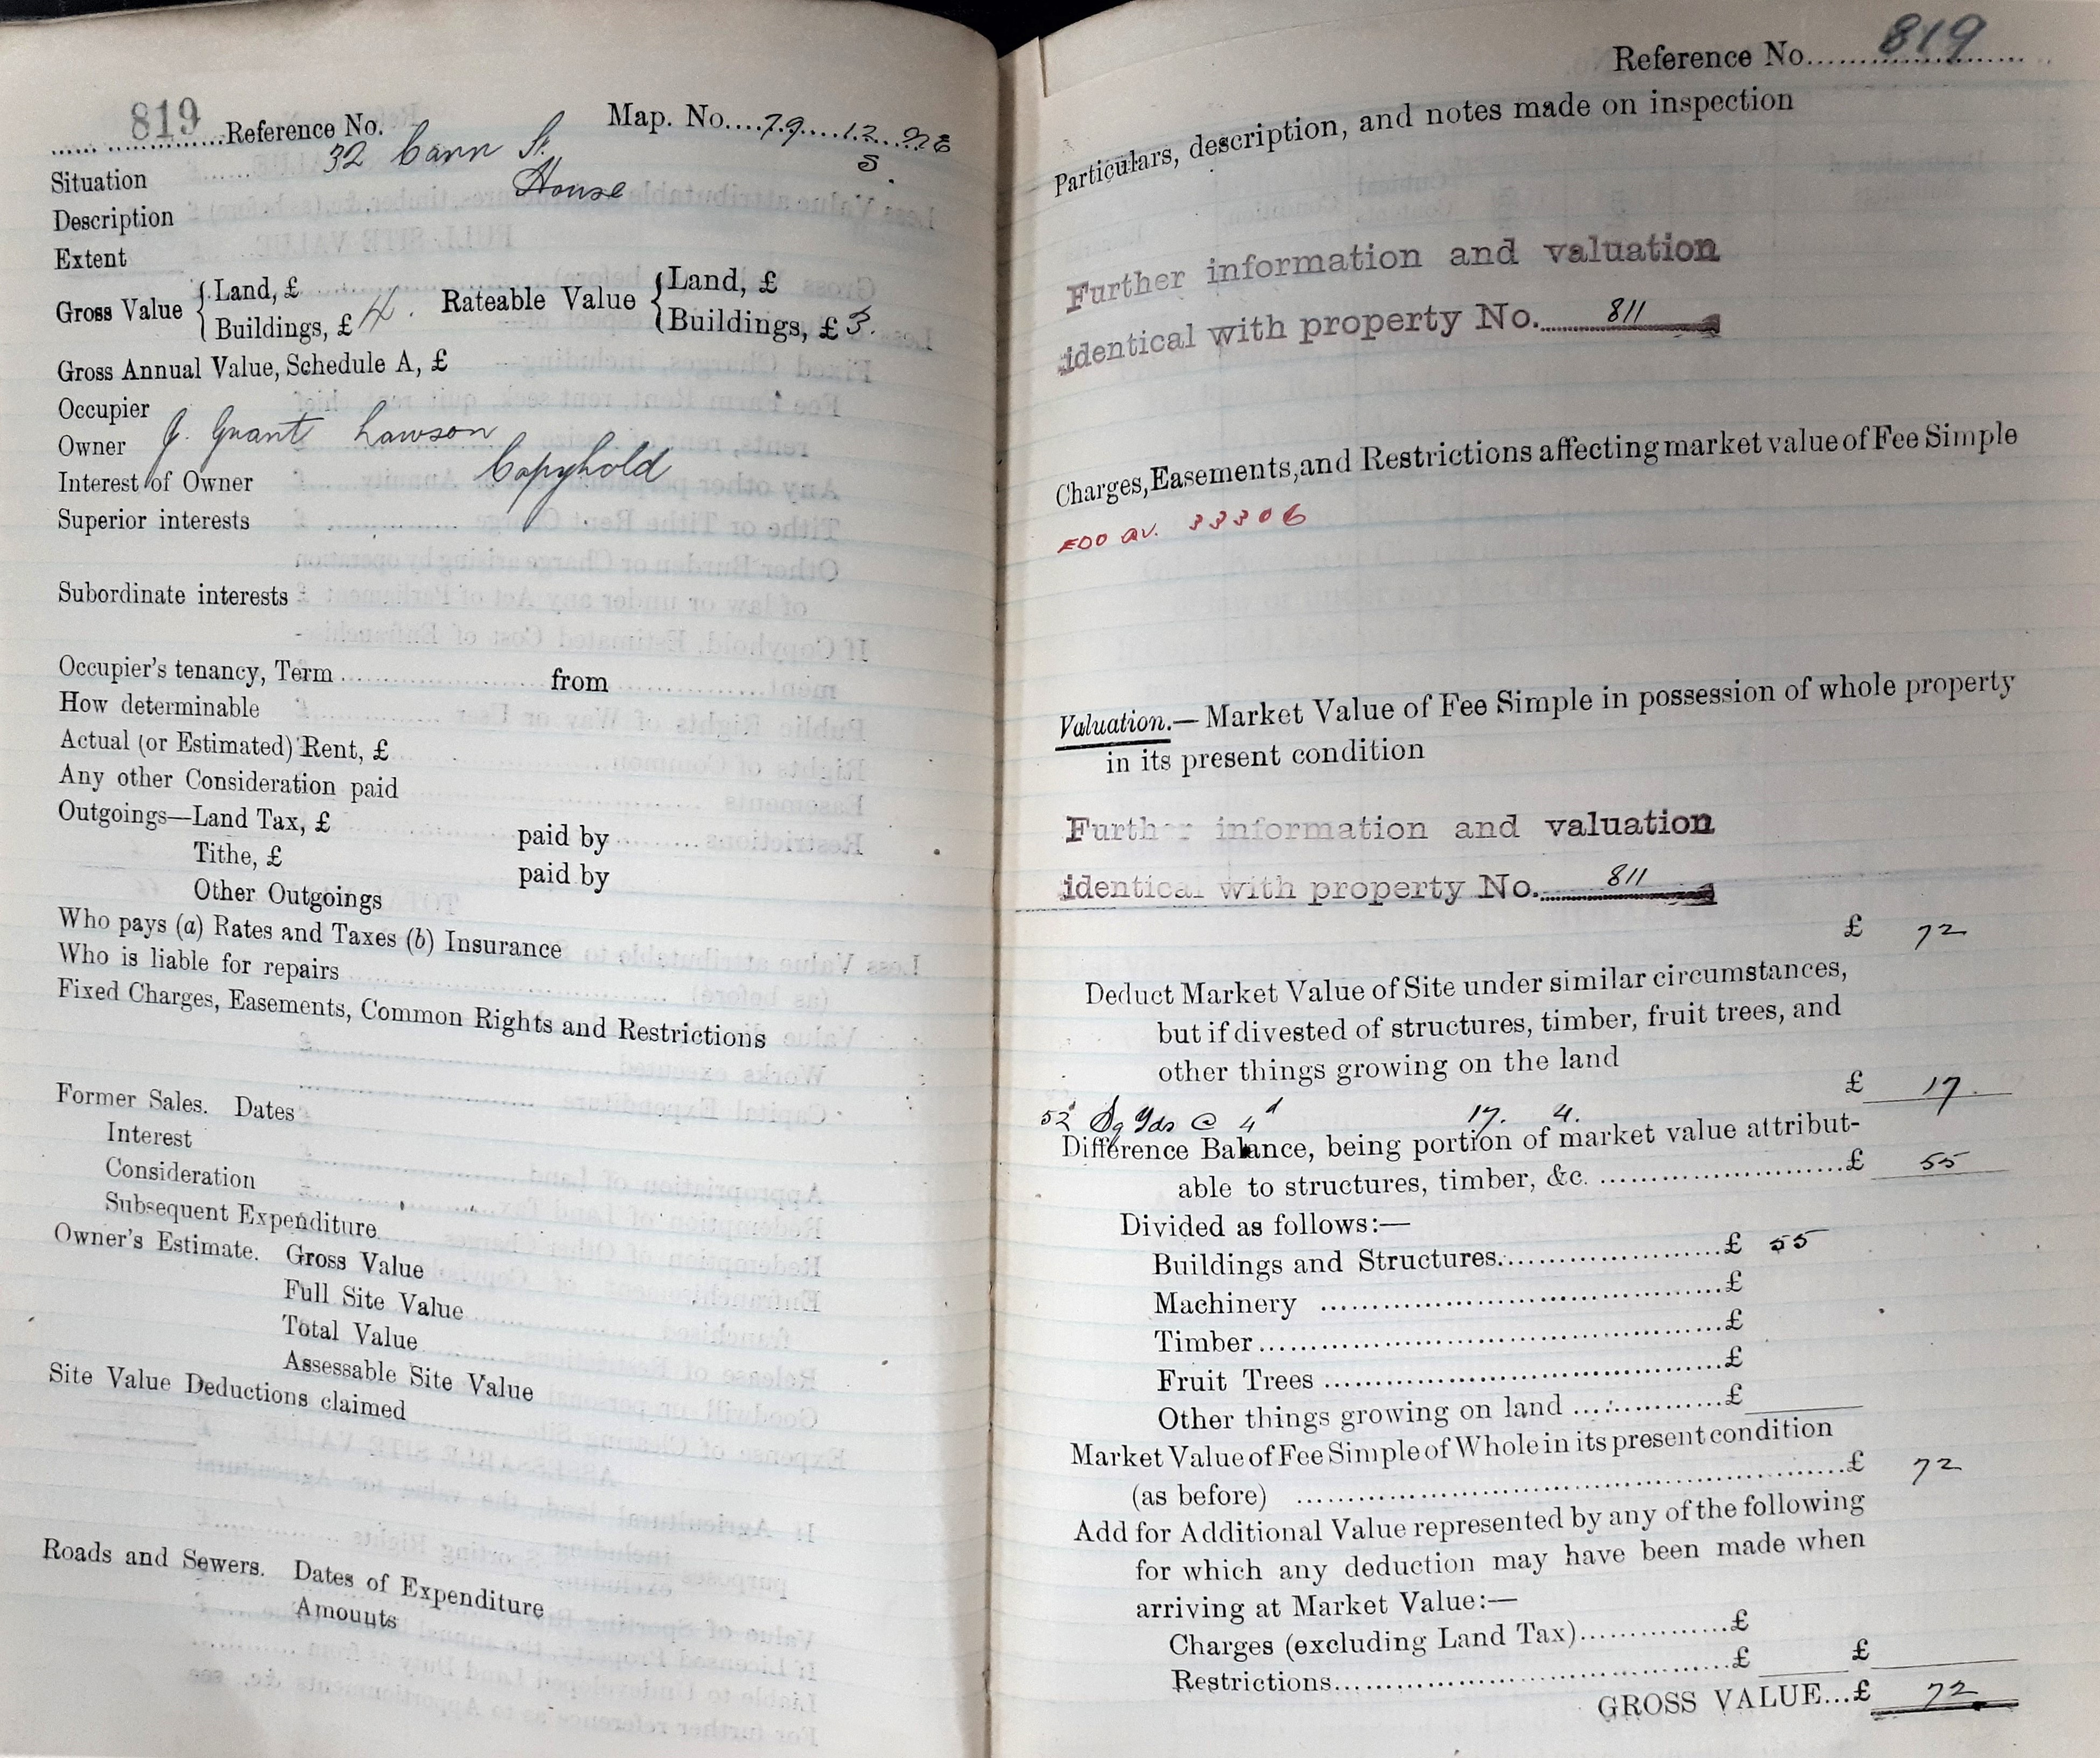 819 Reference No. Map. No. 79 12
S.
Situation 32 Cann St.
Description House
Extent
Gross Value { Land, £ Rateable Value { Land, £
Buildings, £ 4. Buildings, £ 3.
Gross Annual Value, Schedule A, £
Occupier
Owner J. Grant Lawson
Interest of Owner Copyhold
Superior interests
Subordinate interests
Occupier's tenancy, Term from
How determinable
Actual (or Estimated) Rent, £
Any other Consideration paid
Outgoings—Land Tax, £ paid by
Tithe, £ paid by
Other Outgoings
Who pays (a) Rates and Taxes (b) Insurance
Who is liable for repairs
Fixed Charges, Easements, Common Rights and Restrictions
Former Sales. Dates
Interest
Consideration
Subsequent Expenditure
Owner's Estimate. Gross Value
Full Site Value
Total Value
Assessable Site Value
Site Value Deductions claimed
Roads and Sewers. Dates of Expenditure
Amounts
Reference No. 819
Particulars, description, and notes made on inspection
Further information and valuation
identical with property No. 811
Charges, Easements, and Restrictions affecting market value of Fee Simple
EDO av. 33306
Valuation.— Market Value of Fee Simple in possession of whole property
in its present condition
Further information and valuation
identical with property No. 811
£ 72
Deduct Market Value of Site under similar circumstances,
but if divested of structures, timber, fruit trees, and
other things growing on the land
£ 17.
52 Sq Yds @ 4d 17. 4.
Difference Balance, being portion of market value attribut-
able to structures, timber, &c. £ 55
Divided as follows:—
Buildings and Structures £ 55
Machinery £
Timber £
Fruit Trees £
Other things growing on land £
Market Value of Fee Simple of Whole in its present condition
(as before) £ 72
Add for Additional Value represented by any of the following
for which any deduction may have been made when
arriving at Market Value:—
Charges (excluding Land Tax) £
Restrictions £ £
GROSS VALUE...£ 72